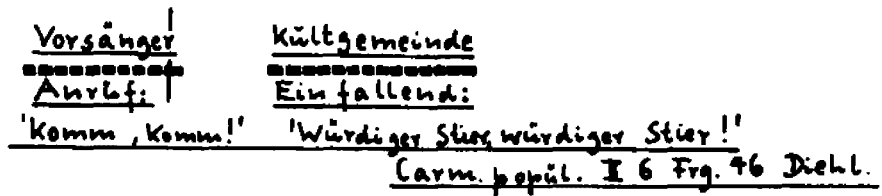 Vorsänger Kültgemeinde
Anrüf: Einfallend:
'Komm, Komm!' 'Würdiger Stier, würdiger Stier!'
Carm. popül. II 6 Frg. 46 Diehl.